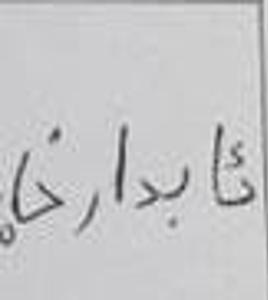 ئابدارخا